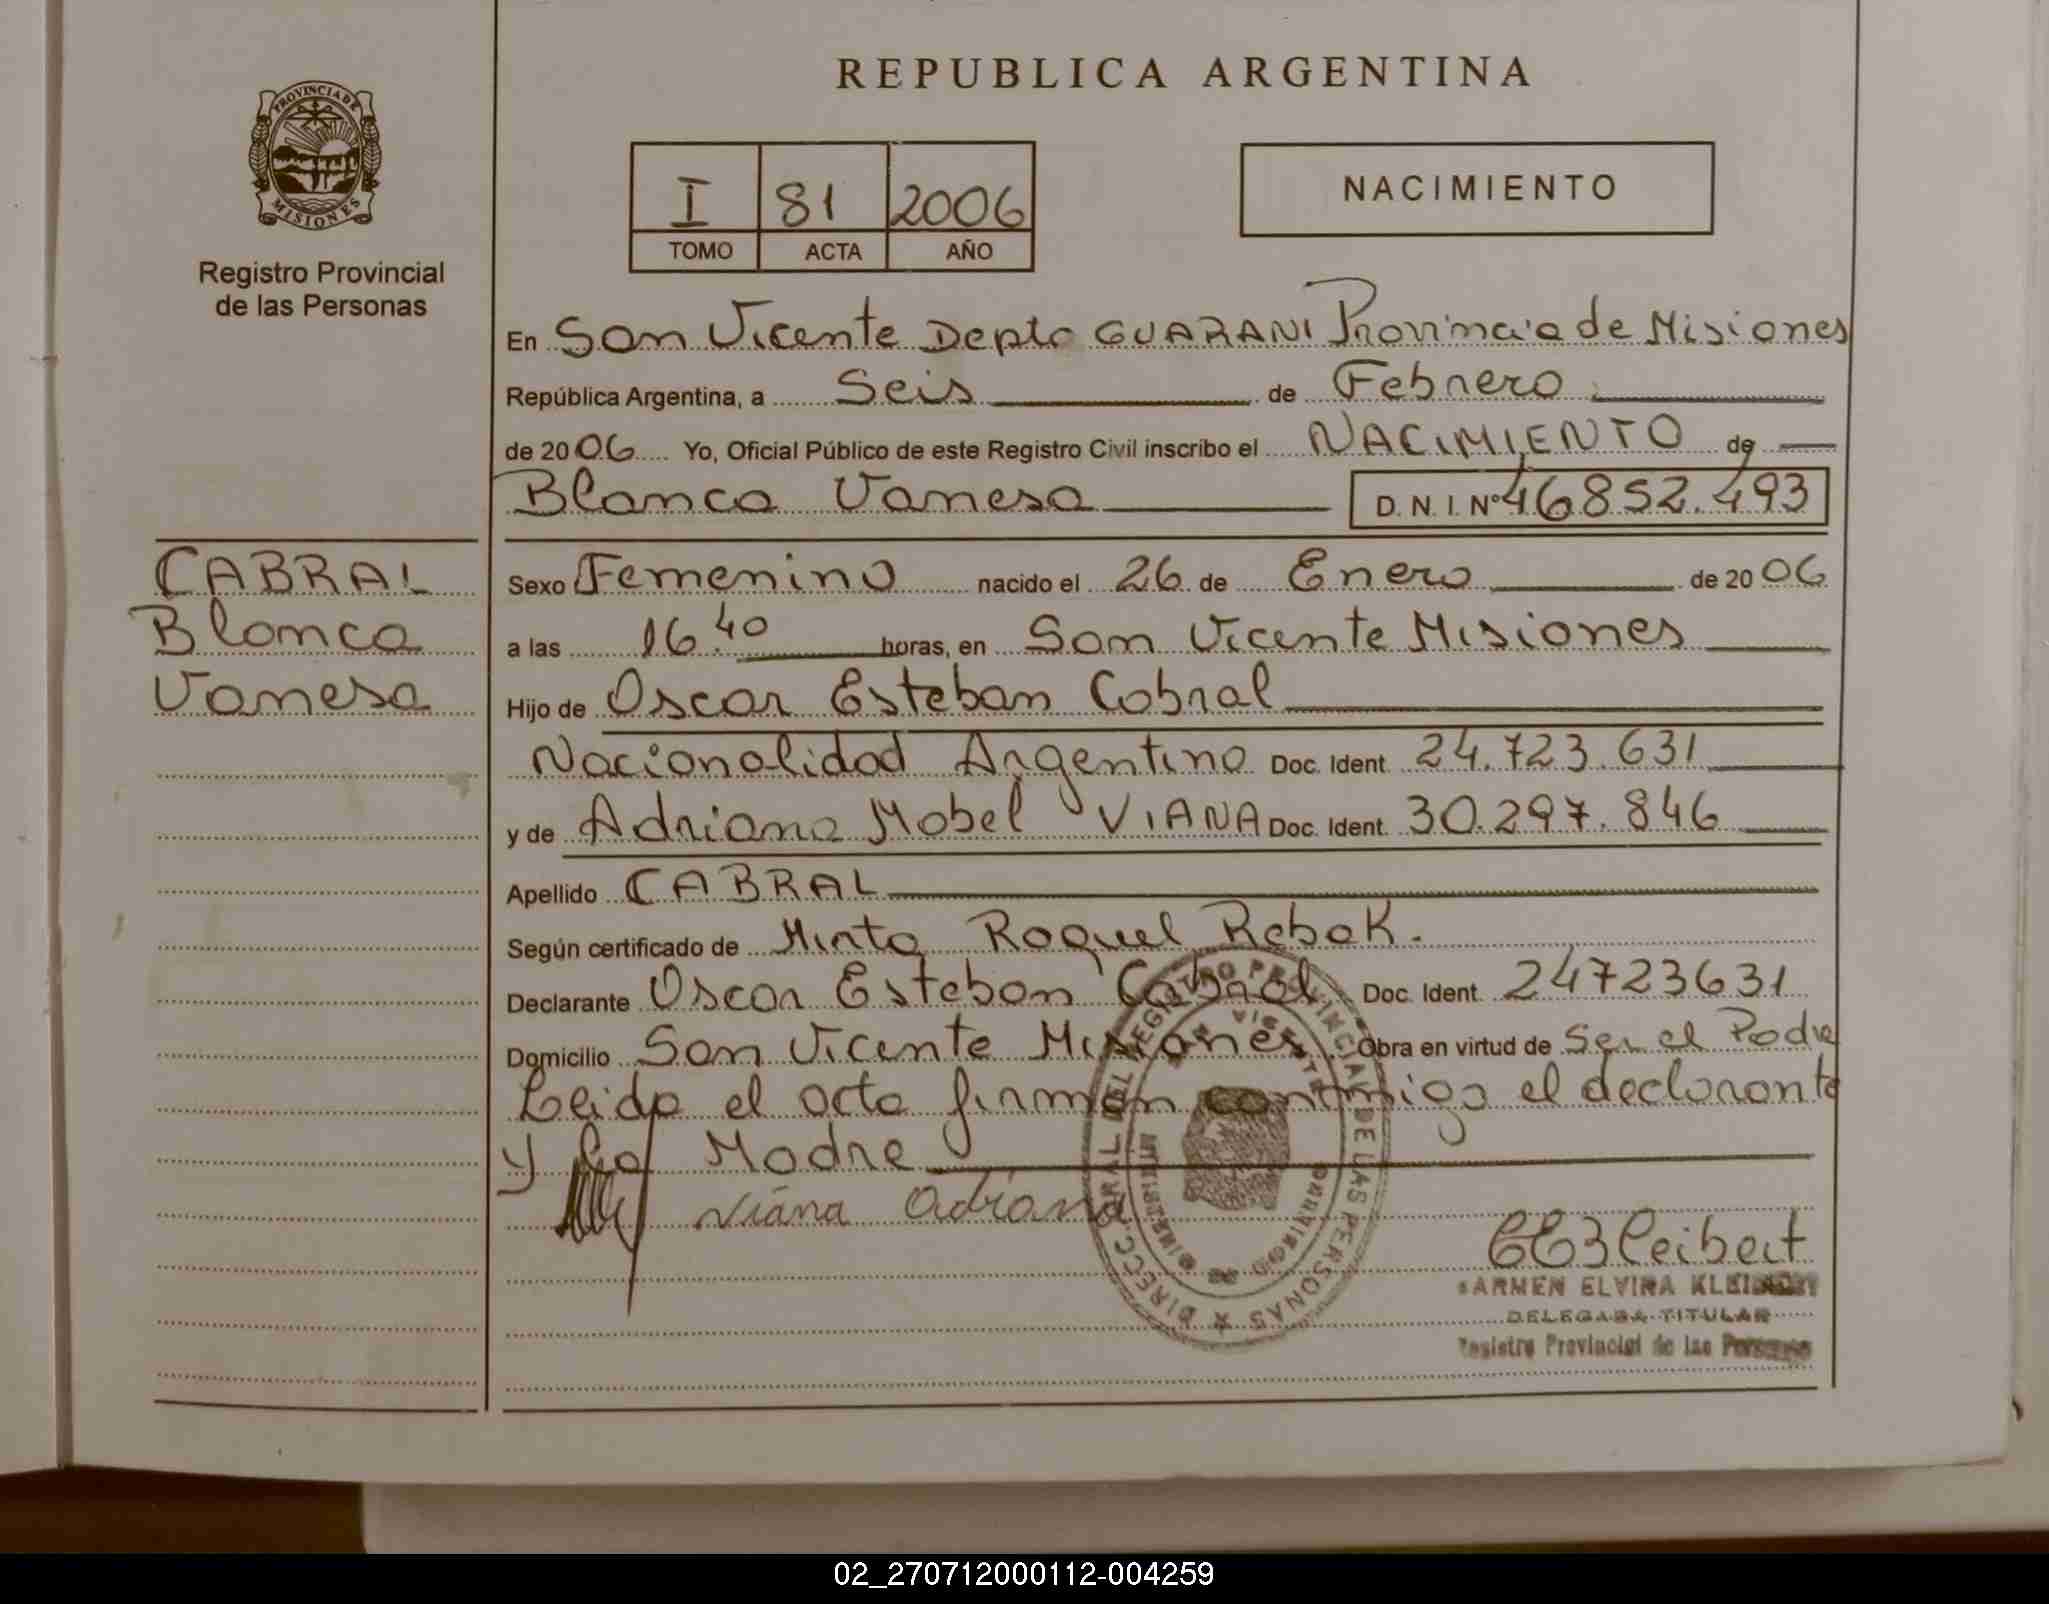 REPUBLICA ARGENTINA
PROVINCIA DE
MISIONES
Registro Provincial
de las Personas
I 81 2006
TOMO ACTA AÑO
NACIMIENTO
En San Vicente Depto GUARANI Provincia de Misiones
República Argentina, a Seis de Febrero
de 2006 Yo, Oficial Público de este Registro Civil inscribo el NACIMIENTO de
Blanca Vanesa D.N.I. Nº 46852.493
CABRAL
Blanca
Vanesa
Sexo Femenino nacido el 26 de Enero de 2006
a las 16.40 horas, en San Vicente Misiones
Hijo de Oscar Esteban Cabral
Nacionalidad Argentina Doc. Ident. 24.723.631
y de Adriana Mabel VIANA Doc. Ident. 30.297.846
Apellido CABRAL
Según certificado de Mirta Raquel Rebak.
Declarante Oscar Esteban Cabral Doc. Ident. 24723631
Domicilio San Vicente Misiones Obra en virtud de Ser el Padre
Leida el acta firman conmigo el declarante
y la Madre
Viana Adriana
DIRECC. GRAL DEL REGISTRO PROVINCIAL DE LAS PERSONAS
SAN VICENTE
MINISTERIO DE GOBIERNO
ARMEN ELVIRA
DELEGADA TITULAR
Registro Provincial de las Personas
02_270712000112-004259